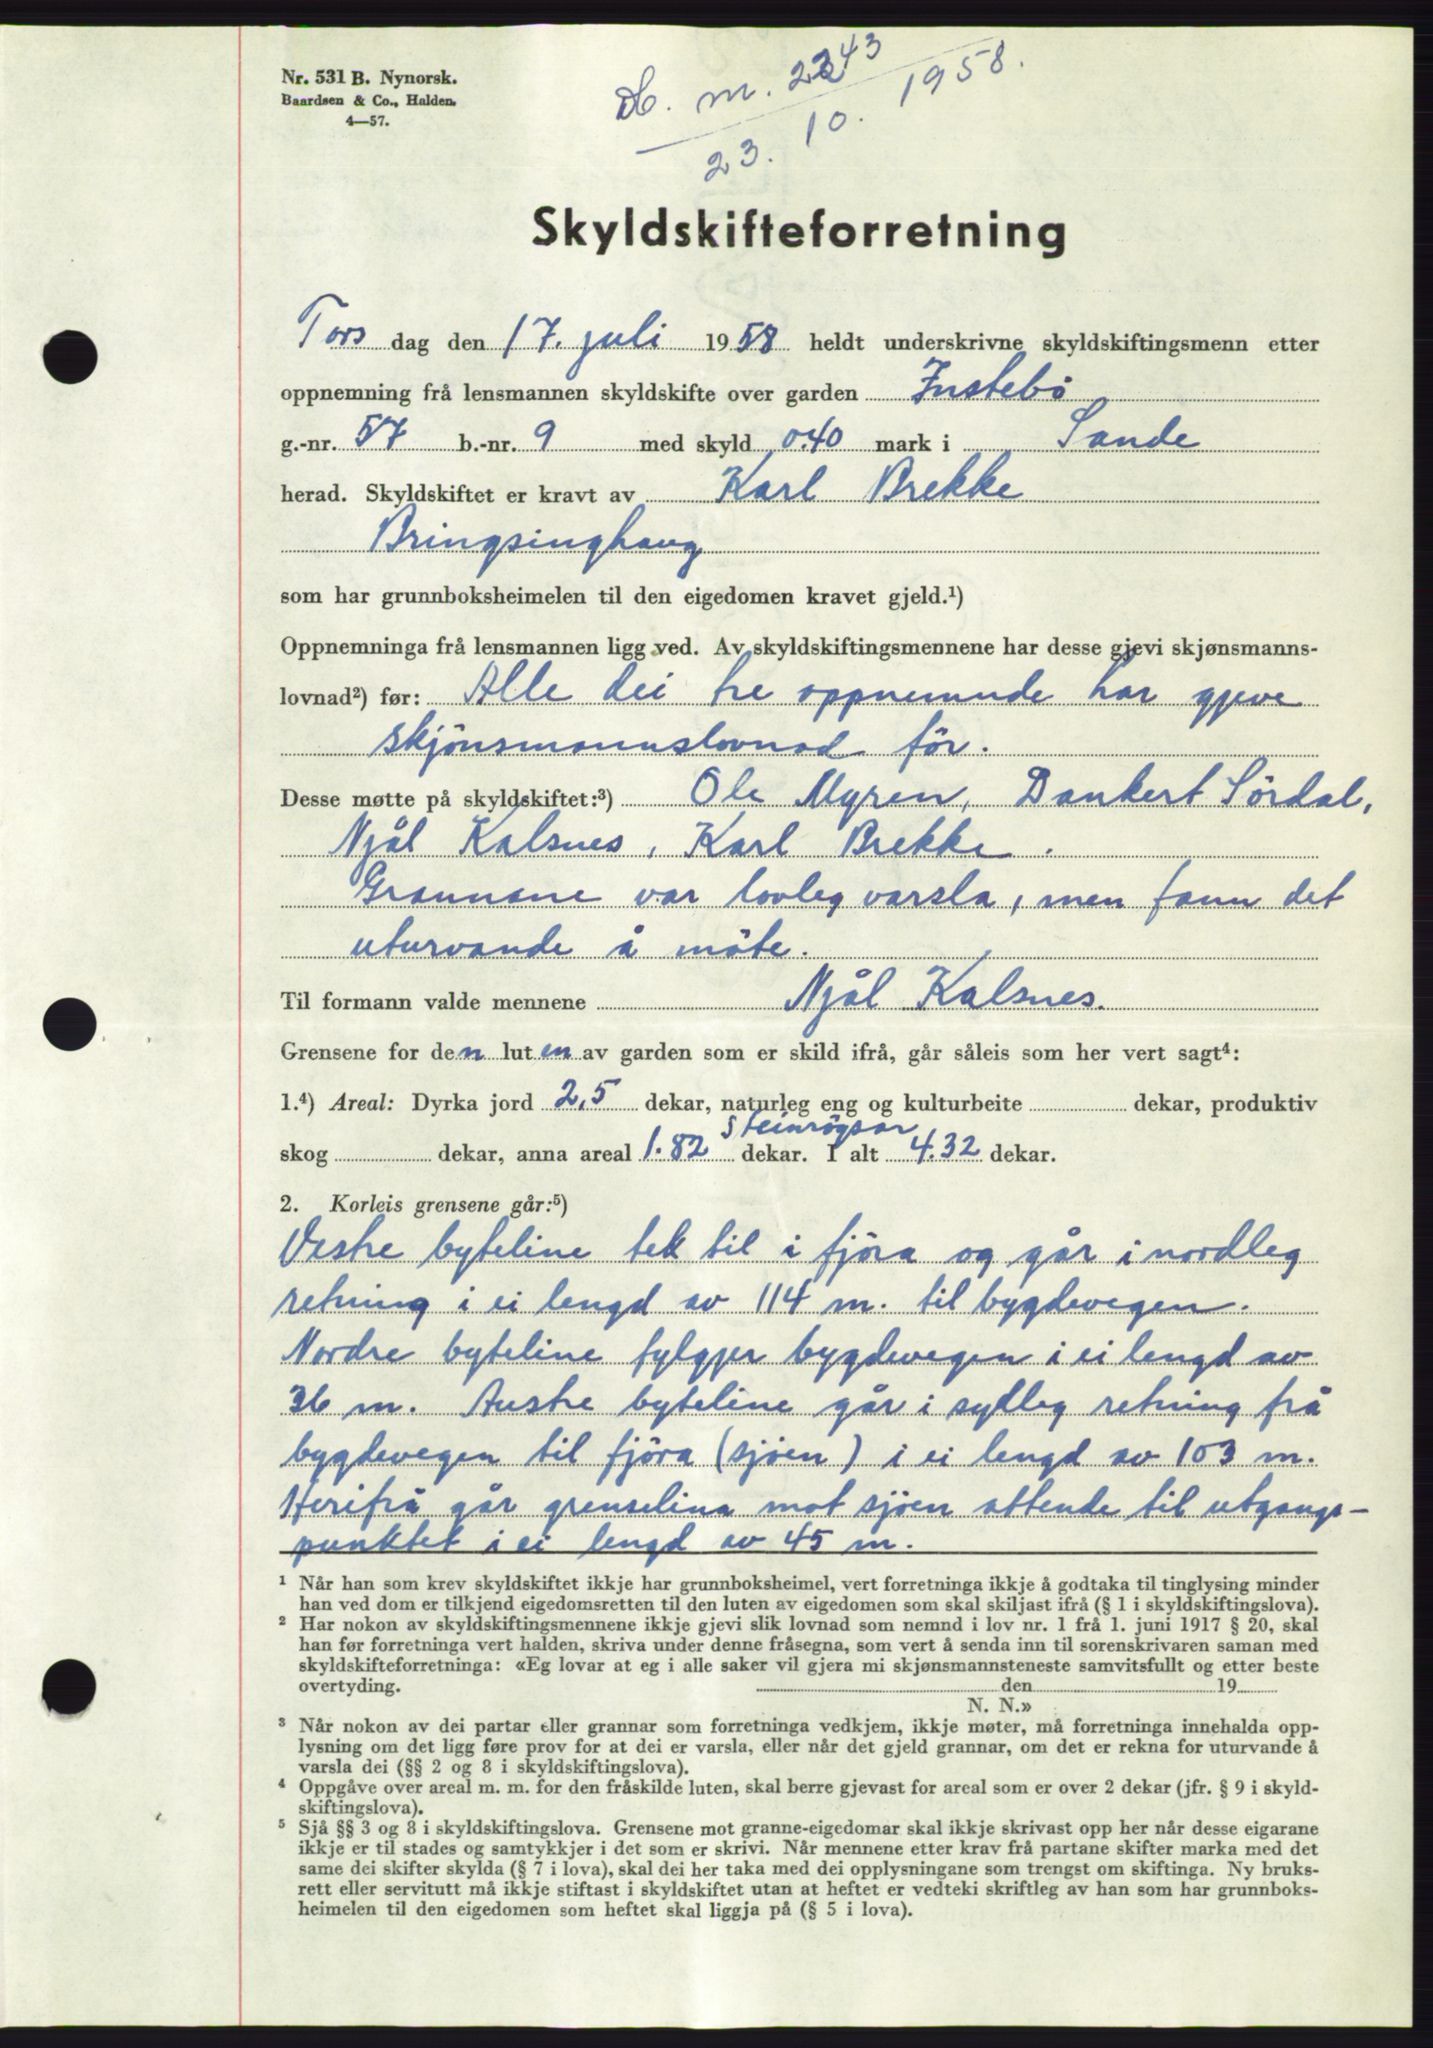 Nr. 531 B. Nynorsk.
Baardsen & Co., Halden.
4—57.
Db. m. 2243
23. 10. 1958.
Skyldskifteforretning
Tors dag den 17. juli 1958 heldt underskrivne skyldskiftingsmenn etter
oppnemning frå lensmannen skyldskifte over garden Instebö
g.-nr. 57 b.-nr. 9 med skyld 0.40 mark i Sande
herad. Skyldskiftet er kravt av Karl Brekke
Bringsinghaug
som har grunnboksheimelen til den eigedomen kravet gjeld.¹)
Oppnemninga frå lensmannen ligg ved. Av skyldskiftingsmennene har desse gjevi skjønsmanns-
lovnad²) før: Alle dei tre oppnemnde har gjeve
skjönsmannslovnad för.
Desse møtte på skyldskiftet:³) Ole Myren, Dankert Sördal,
Njål Kalsnes, Karl Brekke.
Grannane var lovleg varsla, men fann det
uturvande å möte.
Til formann valde mennene Njål Kalsnes.
Grensene for den luten av garden som er skild ifrå, går såleis som her vert sagt⁴:
1.⁴) Areal: Dyrka jord 2,5 dekar, naturleg eng og kulturbeite dekar, produktiv
steinrögsar
skog dekar, anna areal 1.82 dekar. I alt 4.32 dekar.
2. Korleis grensene går:⁵)
Vestre byteline tek til i fjöra og går i nordleg
retning i ei lengd av 114 m. til bygdevegen.
Nordre byteline fylgjer bygdevegen i ei lengd av
36 m. Austre byteline går i sydleg retning frå
bygdevegen til fjöra (sjöen) i ei lengd av 103 m.
Herifrå går grenselina mot sjöen attende til utgangs-
punktet i ei lengd av 45 m.
¹ Når han som krev skyldskiftet ikkje har grunnboksheimel, vert forretninga ikkje å godtaka til tinglysing minder
han ved dom er tilkjend eigedomsretten til den luten av eigedomen som skal skiljast ifrå (§ 1 i skyldskiftingslova).
² Har nokon av skyldskiftingsmennene ikkje gjevi slik lovnad som nemnd i lov nr. 1 frå 1. juni 1917 § 20, skal
han før forretninga vert halden, skriva under denne fråsegna, som vert å senda inn til sorenskrivaren saman med
skyldskifteforretninga: «Eg lovar at eg i alle saker vil gjera mi skjønsmannsteneste samvitsfullt og etter beste
overtyding. den 19
N. N.»
³ Når nokon av dei partar eller grannar som forretninga vedkjem, ikkje møter, må forretninga innehalda opp-
lysning om det ligg føre prov for at dei er varsla, eller når det gjeld grannar, om det er rekna for uturvande å
varsla dei (§§ 2 og 8 i skyldskiftingslova).
⁴ Oppgåve over areal m. m. for den fråskilde luten, skal berre gjevast for areal som er over 2 dekar (jfr. § 9 i skyld-
skiftingslova).
⁵ Sjå §§ 3 og 8 i skyldskiftingslova. Grensene mot granne-eigedomar skal ikkje skrivast opp her når desse eigarane
ikkje er til stades og samtykkjer i det som er skrivi. Når mennene etter krav frå partane skifter marka med det
same dei skifter skylda (§ 7 i lova), skal dei her taka med dei opplysningane som trengst om skiftinga. Ny bruks-
rett eller servitutt må ikkje stiftast i skyldskiftet utan at heftet er vedteki skriftleg av han som har grunnboks-
heimelen til den eigedomen som heftet skal liggja på (§ 5 i lova).